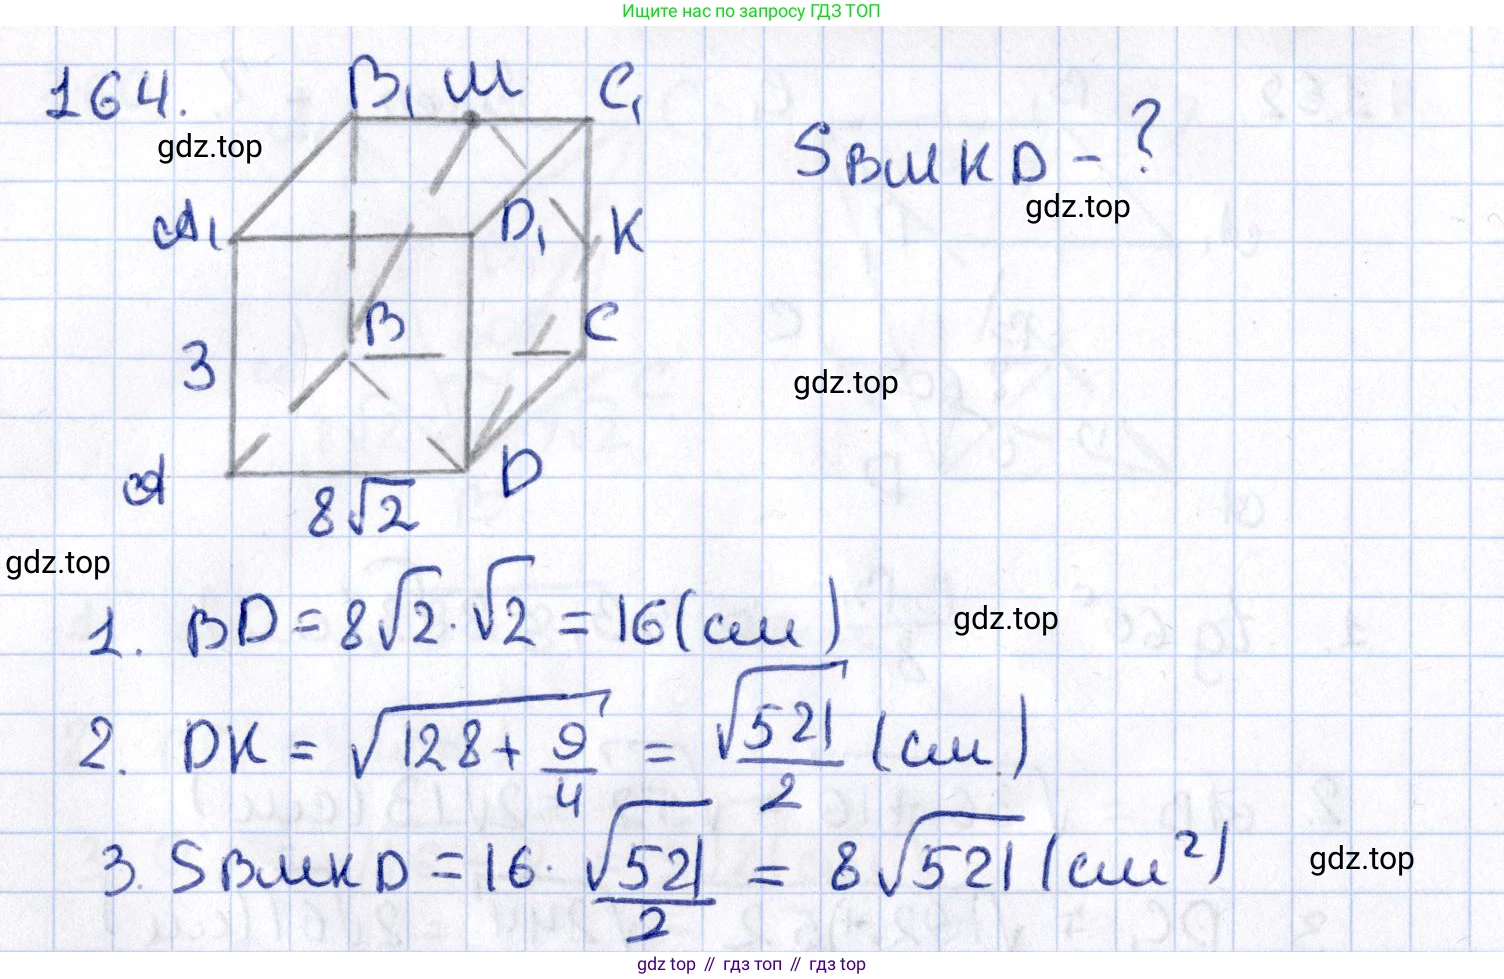 Ищите нас по запросу ГДЗ ТОП
164.
B₁ M C₁
gdz.top
SBMKD - ?
gdz.top
A₁ D₁ K
B C
3
gdz.top
A D
8√2
gdz.top
1. BD = 8√2 · √2 = 16 (см)
gdz.top
2. DK = √(128 + 9/4) = √521/2 (см)
3. SBMKD = 16 · √521/2 = 8√521 (см²)
gdz.top
gdz top // гдз топ // гдз top